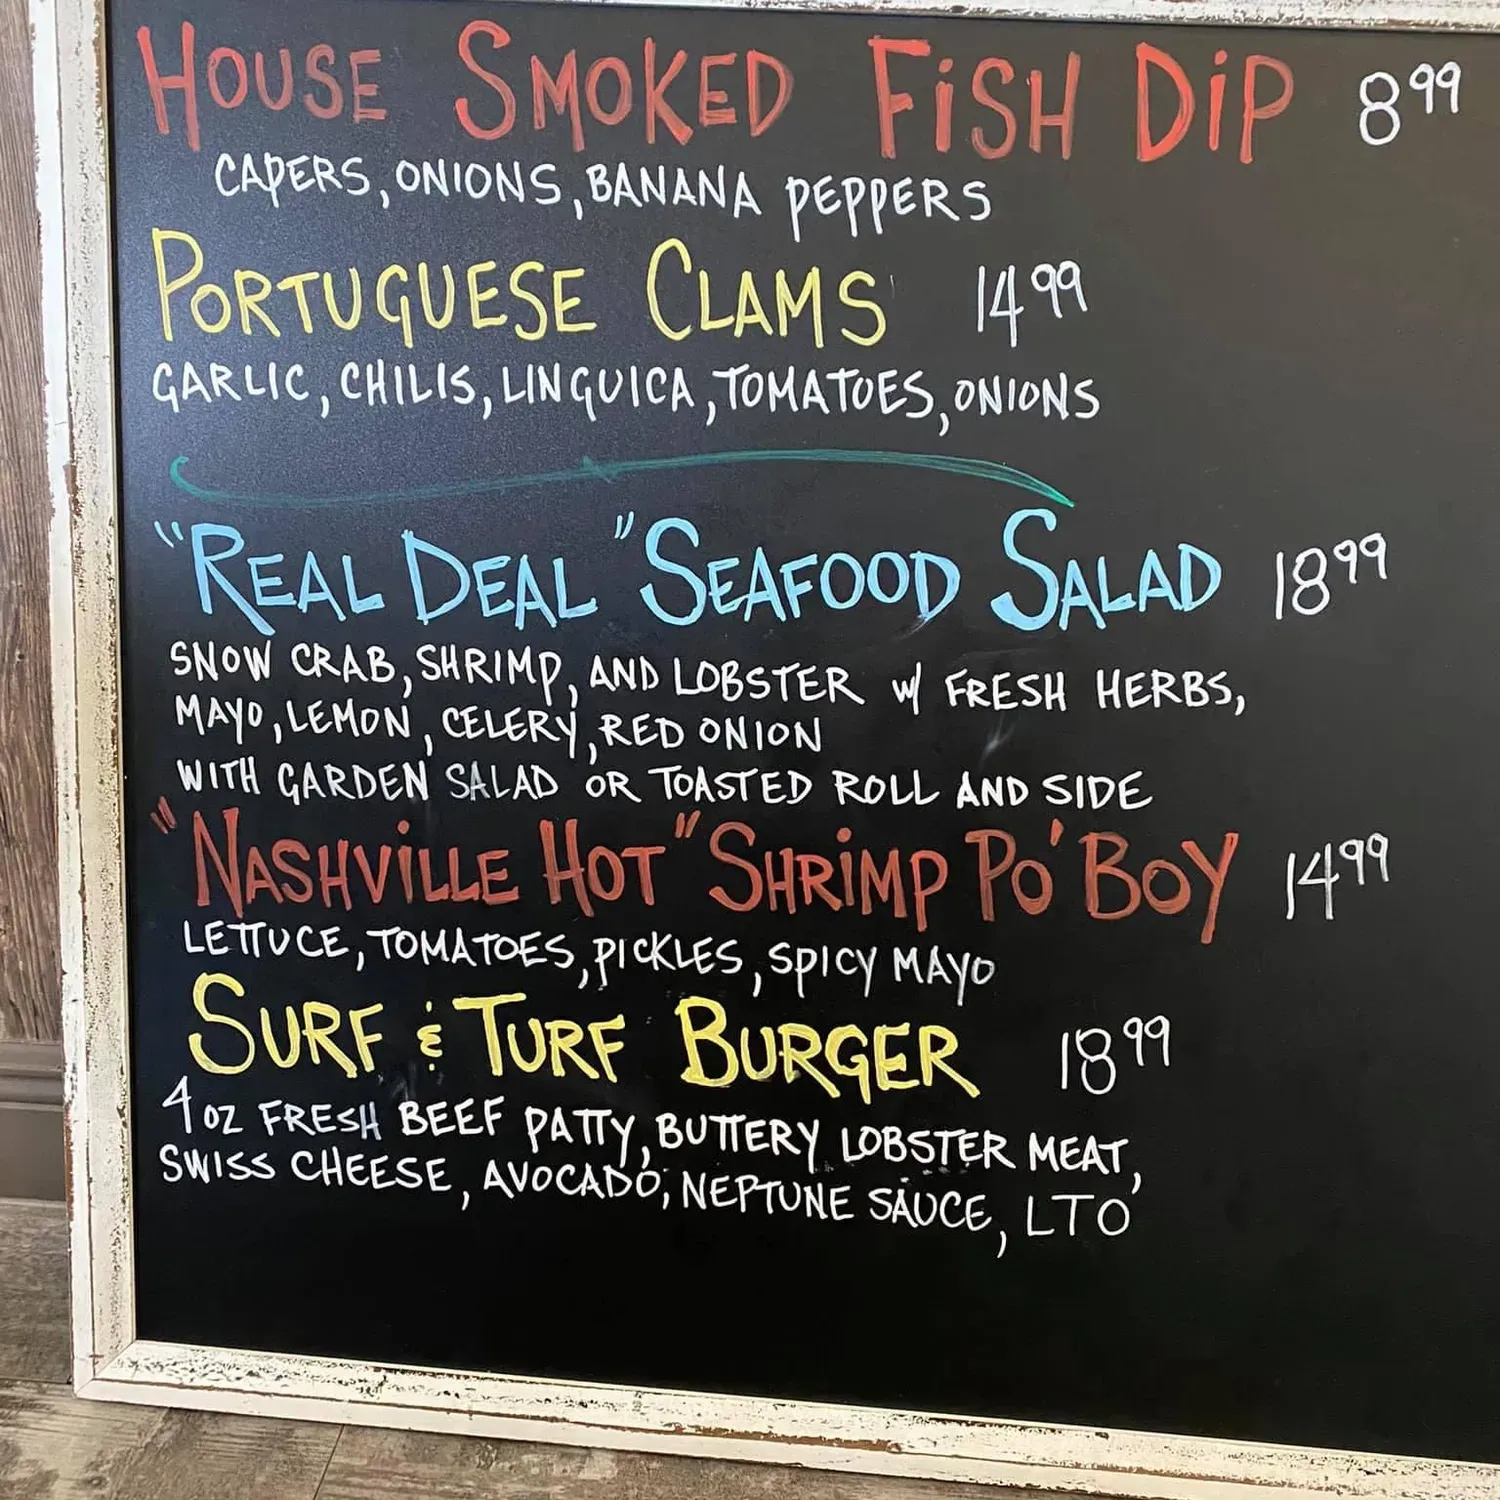 HOUSE SMOKED FISH DIP 8.99
CAPERS, ONIONS, BANANA PEPPERS
PORTUGUESE CLAMS 14.99
GARLIC, CHILIS, LINGUICA, TOMATOES, ONIONS
"REAL DEAL" SEAFOOD SALAD 18.99
SNOW CRAB, SHRIMP, AND LOBSTER w/ FRESH HERBS,
MAYO, LEMON, CELERY, RED ONION
WITH GARDEN SALAD OR TOASTED ROLL AND SIDE
"NASHVILLE HOT" SHRIMP PO' BOY 14.99
LETTUCE, TOMATOES, PICKLES, SPICY MAYO
SURF & TURF BURGER 18.99
4 OZ FRESH BEEF PATTY, BUTTERY LOBSTER MEAT,
SWISS CHEESE, AVOCADO, NEPTUNE SAUCE, LTO